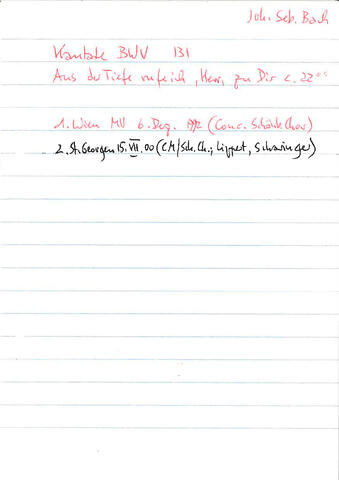 Joh. Seb. Bach
Kantate BWV 131
Aus der Tiefe rufe ich, Herr, zu Dir c. 22'00
1. Wien MV 6. Dez. 1992 (Conc. Schönb. Chor)
2. St. Georgen 15. VII. 00 (CM/Sch. Ch.; Lippert, Schwinger)